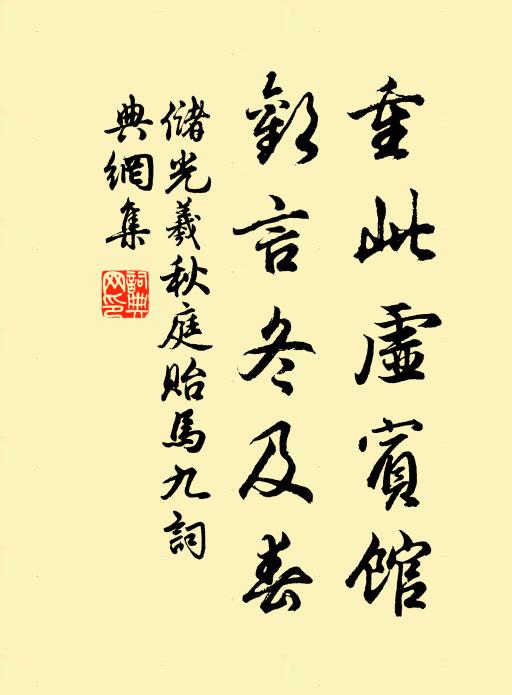 重此虛賓館
歡言冬及春
儲光羲秋庭貽馬九詞
典網集
詞典网印